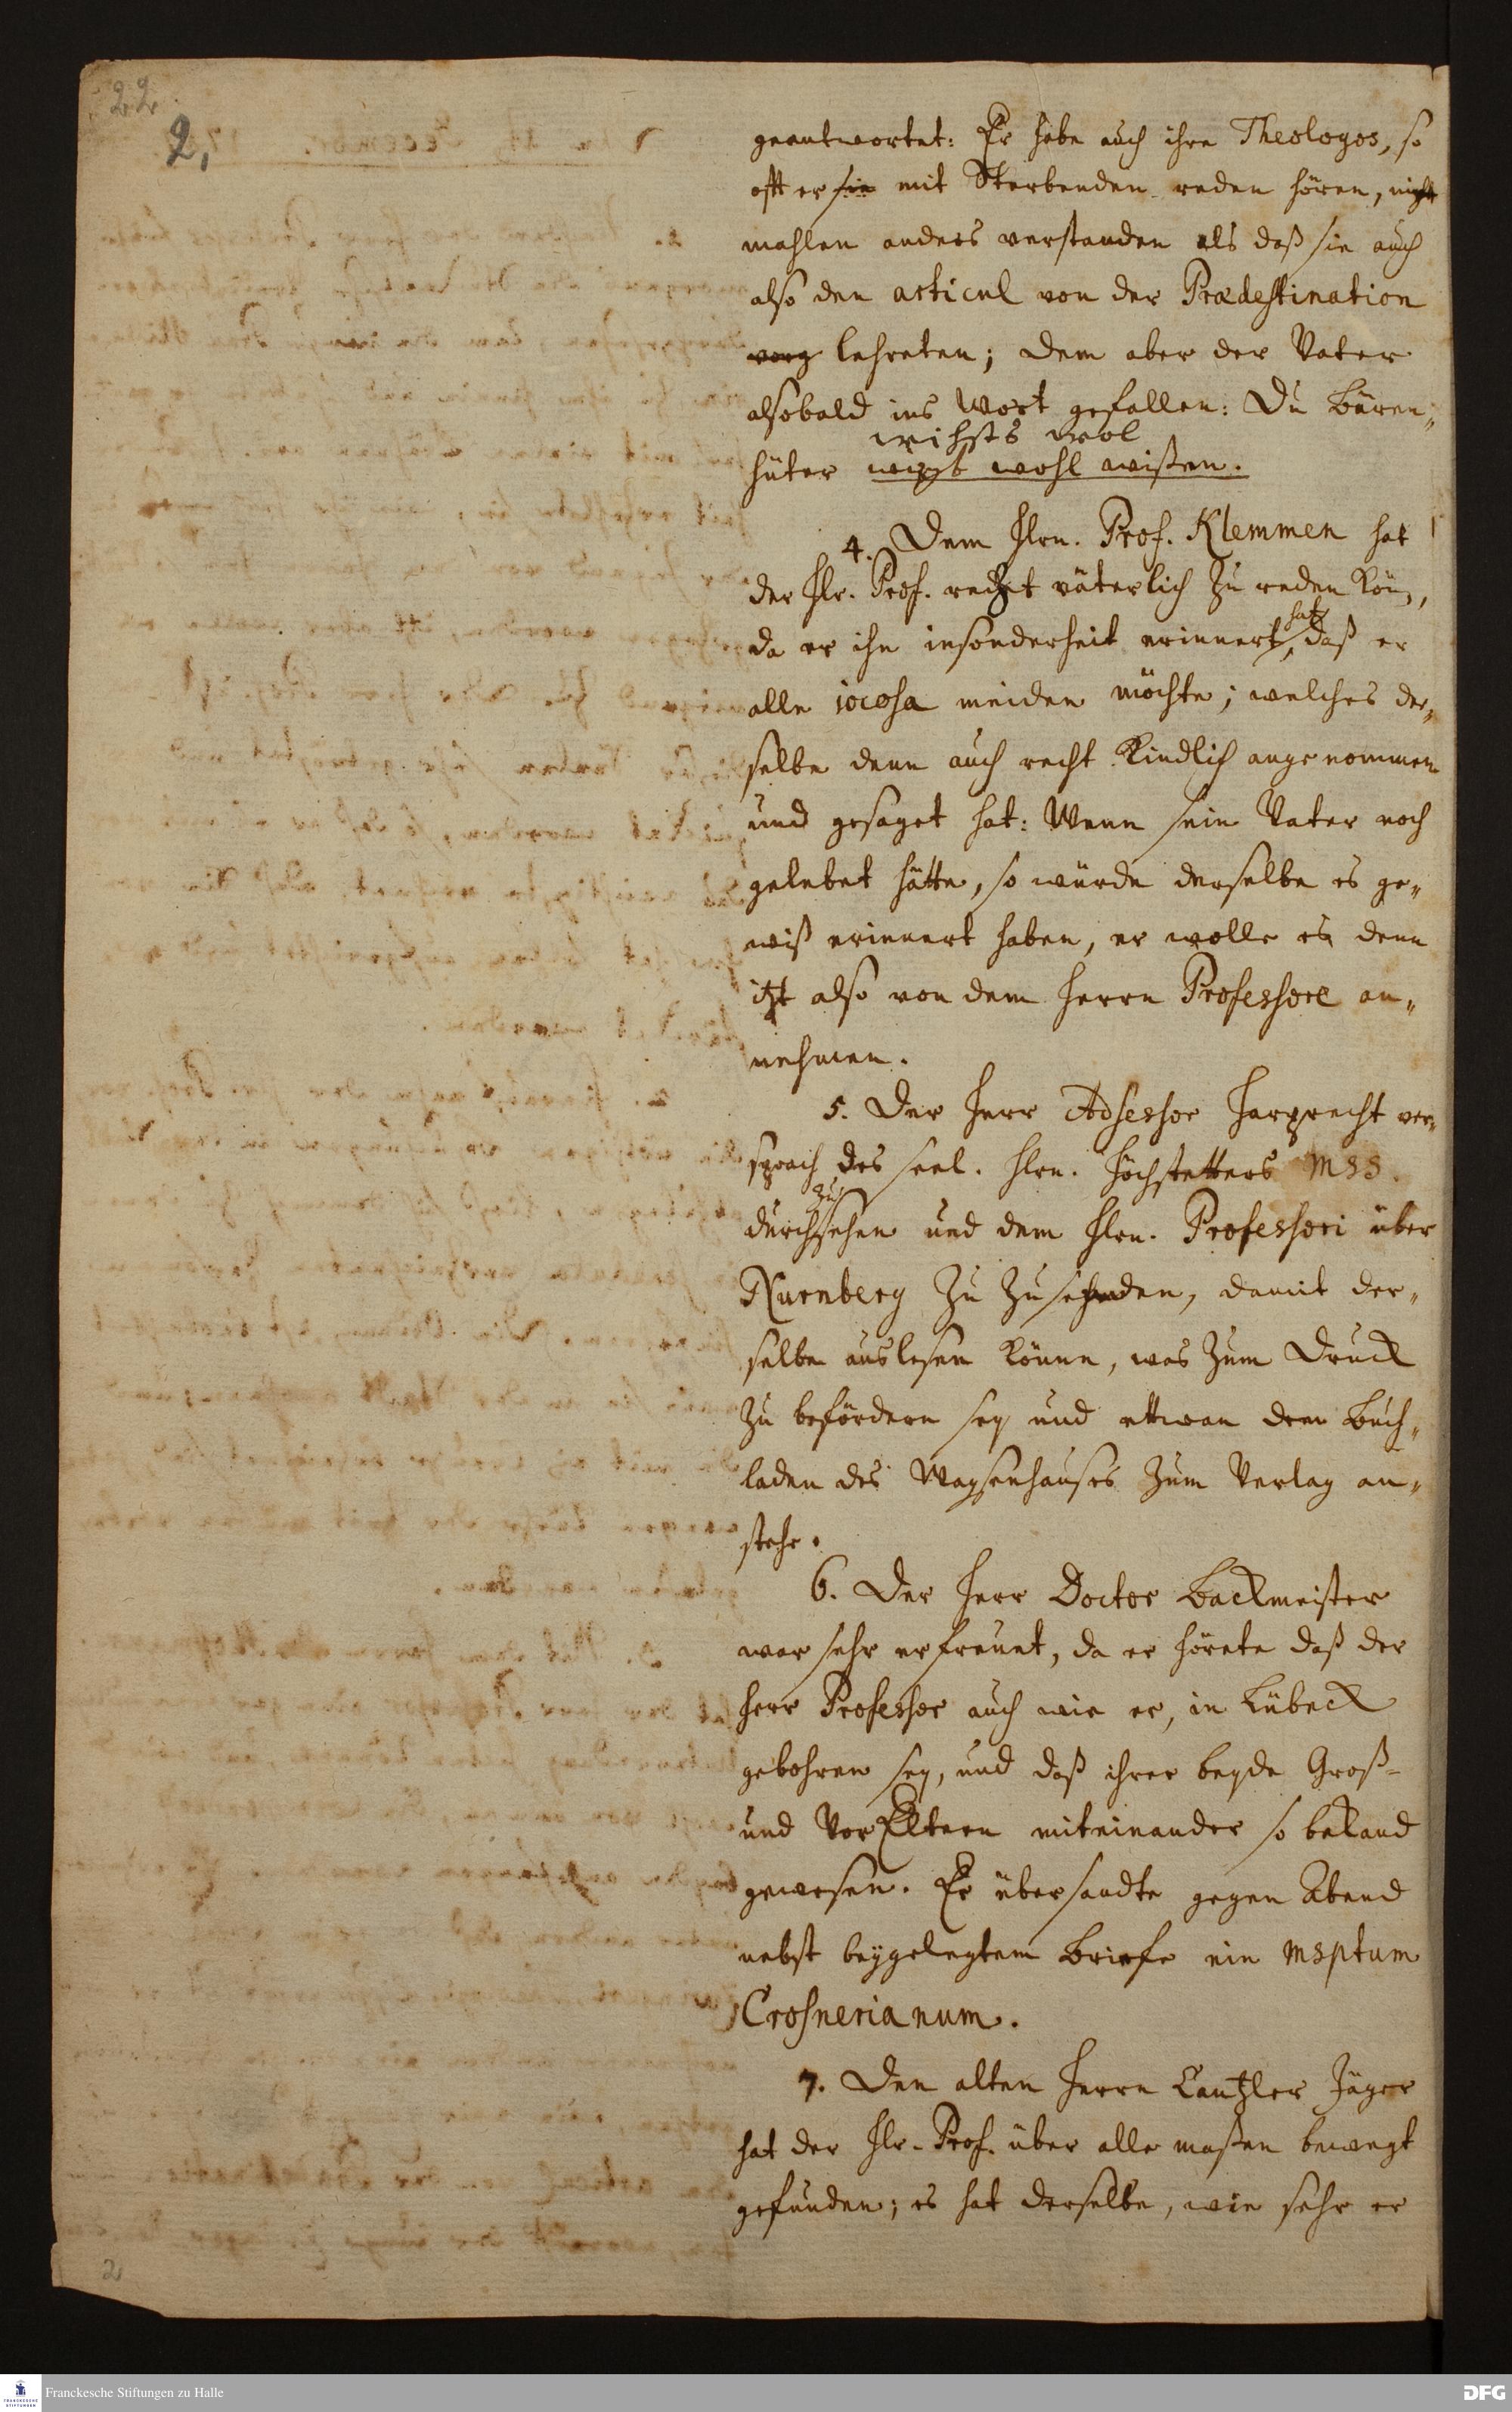 22
2,
geantwortet: Er habe auch ihre Theologos, so
offt er sie mit Sterbenden reden hören,
mahlen anders verstanden als daß sie auch
also den articul von der Prædestination
vorg lehreten; dem aber der Vater
alsobald ins Wort gefallen: Du Bären„
wihsts wol
häter wohl wißen.
4. Dem Hln. Prof. Klemmen hat
der Hr. Prof. recht väterlich zu reden
hat
da er ihn insonderheit erinnert, daß er
alle iocosa meiden möchte; welches der„
selbe denn auch recht Kindlich angenommen
und gesaget hat: Wenn sein Vater noch
gelebet hätte, so würde derselbe es ge„
wiß erinnert haben, er wolle es denn
itzt also von dem Herrn Professore an„
nehmen.
5. Der Herr Adsessor Harprecht ver„
sprach des seel. Hln. Höchstetters Mss.
zu
durchsehen und dem Hln. Professori über
Nurnberg zu zusenden, damit der„
selbe auslesen könne, was zum Druck
zu befördern sey und ettwan dem Buch„
laden des Waysenhauses zum Verlag an„
stehe.
6. Der Herr Doctor Backmeister
war sehr erfreuet, da er hörete daß der
Herr Professor auch wie er, in Lübeck
gebohren sey, und daß ihrer beyde Groß-
und VorEltern miteinander so bekand
gewesen. Er übersandte gegen Abend
nebst beygelegtem Briefe ein Msptum
Crosnerianum.
7. Den alten Herrn Cantzler Jäger
hat der Hr. Prof. über alle maßen bewegt
gefunden; es hat derselbe, wie sehr er
2
Franckesche Stiftungen zu Halle
DFG